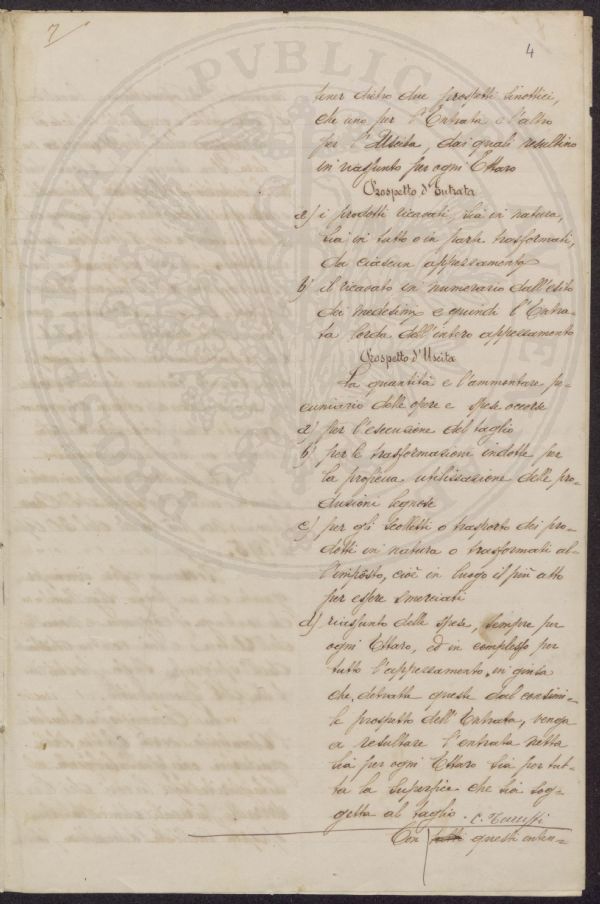 7
4
tener dietro due prospetti sinottici,
che uno per l'Entrata e l'altro
per l'Uscita, dai quali resultino
in riassunto per ogni Ettaro
Prospetto d'Entrata
a) i prodotti ricavati, sia in natura,
sia in tutto o in parte trasformati,
da ciascun appezzamento
b) il ricavato in numerario dall'esito
dei medesimi e quindi l'Entra-
ta lorda dell'intero appezzamento
Prospetto d'Uscita
La quantità e l'ammontare pe-
cuniario delle opere e spese occorse
a) per l'esecuzione del taglio
b) per le trasformazioni indotte per
la proficua utilizzazione delle pro-
duzioni legnose
c) per gli scolletti o trasporto dei pro-
dotti in natura o trasformati al-
l'imposto, cioè in luogo il più atto
per essere smerciati
d) riassunto delle spese, sempre per
ogni Ettaro, ed in complesso per
tutto l'appezzamento, in guisa
che, detratte queste dal consimi-
le prospetto dell'Entrata, venga
a resultare l'entrata netta
sia per ogni Ettaro sia per tut-
ta la superficie che sia sog-
getta al taglio.
Con tutti questi inten-
PROSPERITATI PUBLICAE